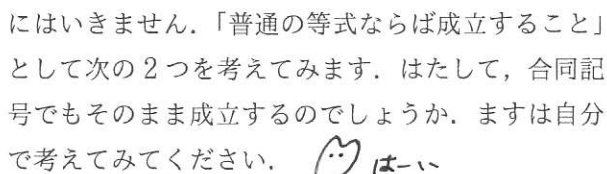 にはいきません．「普通の等式ならば成立すること」
として次の2つを考えてみます．はたして，合同記
号でもそのまま成立するのでしょうか．ますは自分
で考えてみてください． はーい